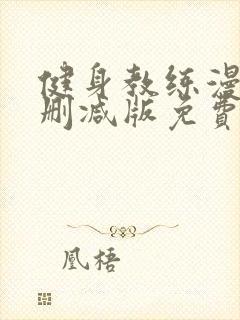 健身教练漫
删减版免費
凰梧